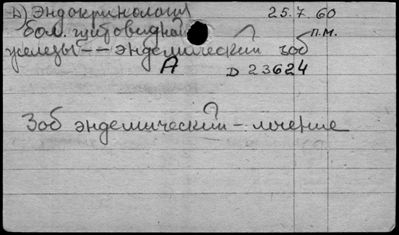 б) Эндокринология 25.7.60
бол. щитовидной п.м.
железы -- эндемический зоб
А D 23624
Зоб эндемический - лечение